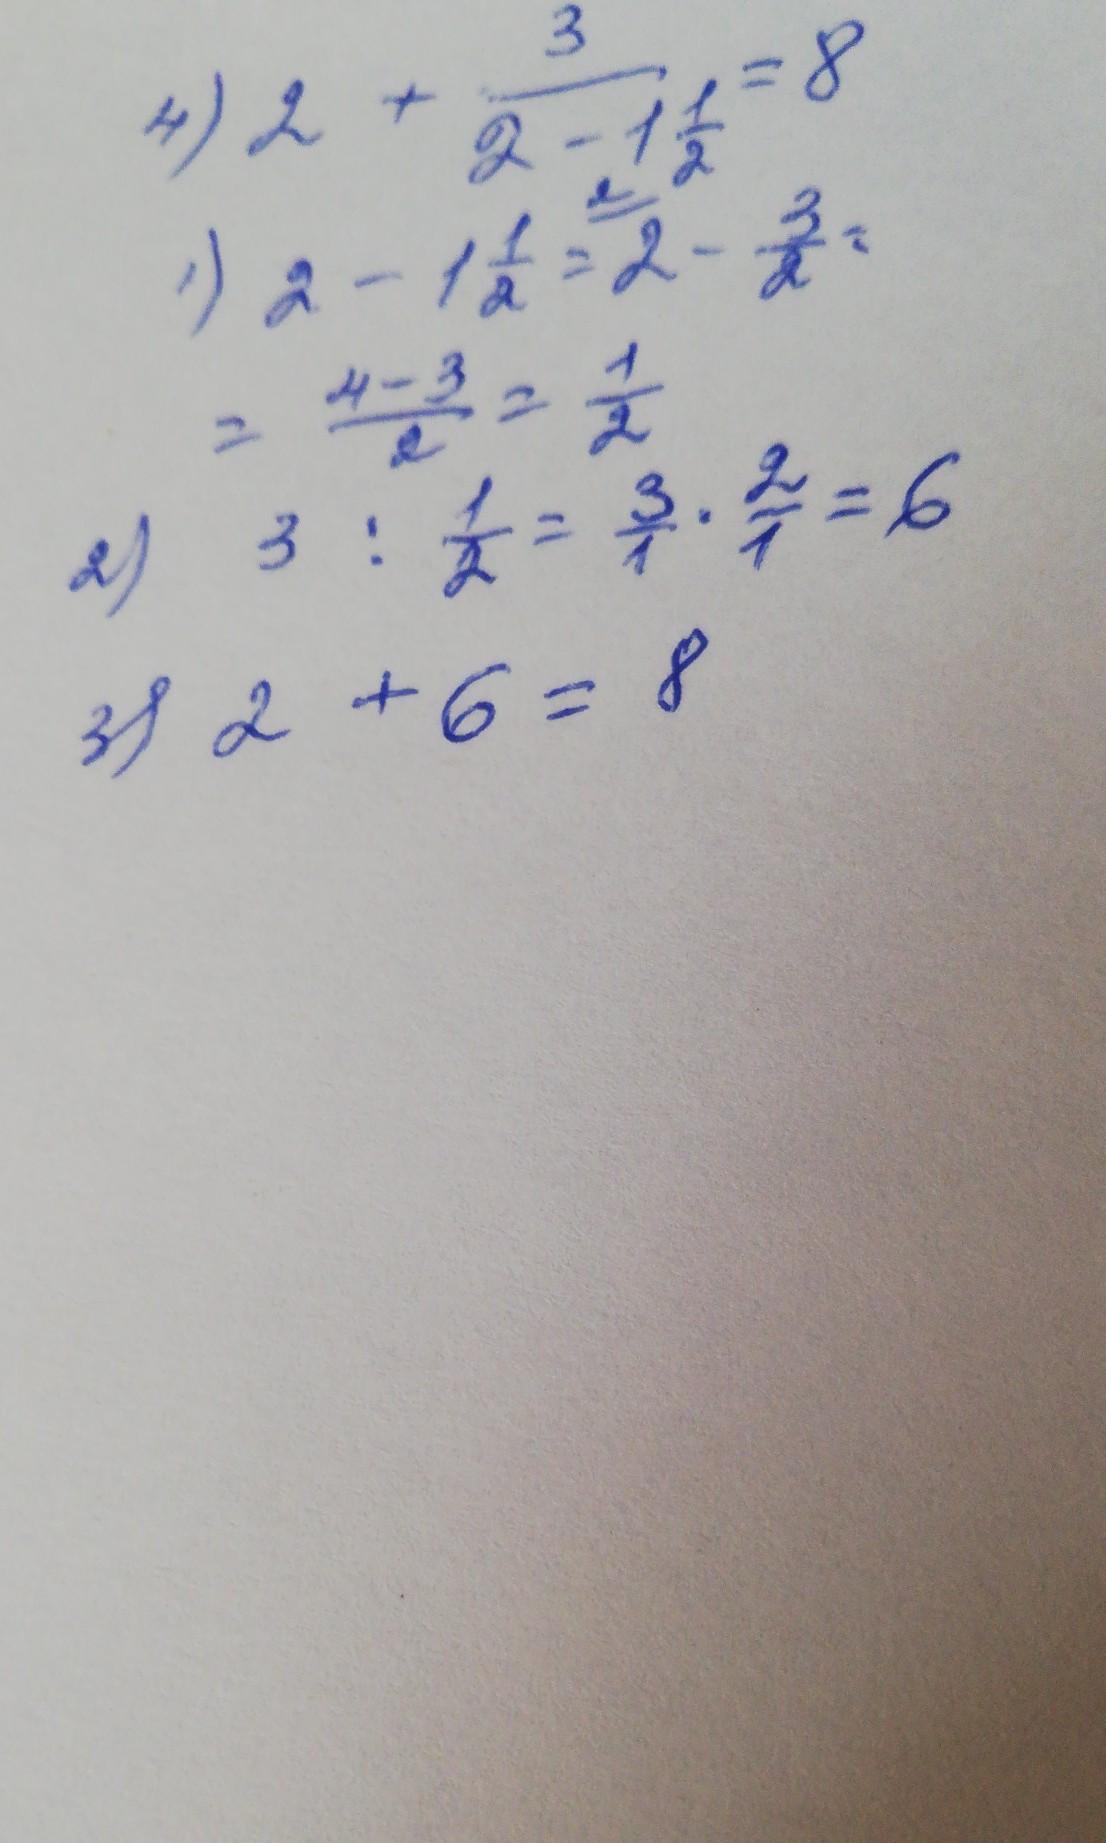 4) 2 + 3/(2 - 1 1/2) = 8
1) 2 - 1 1/2 = 2 - 3/2 =
= (4-3)/2 = 1/2
2) 3 : 1/2 = 3/1 · 2/1 = 6
3) 2 + 6 = 8